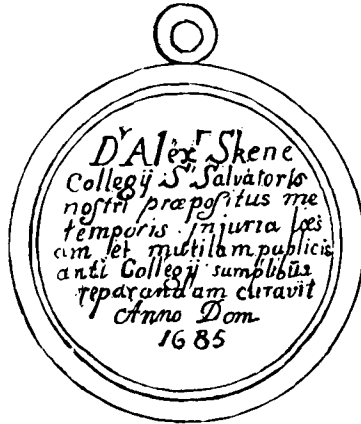 Dʳ Alexʳ Skene
Collegij Sᵗⁱ Salvatoris
noſtri præpoſitus me
temporis injuria læs
am et mutilam publicis
anti Collegij sumptibus
reparandam curavit
Anno Dom
1685